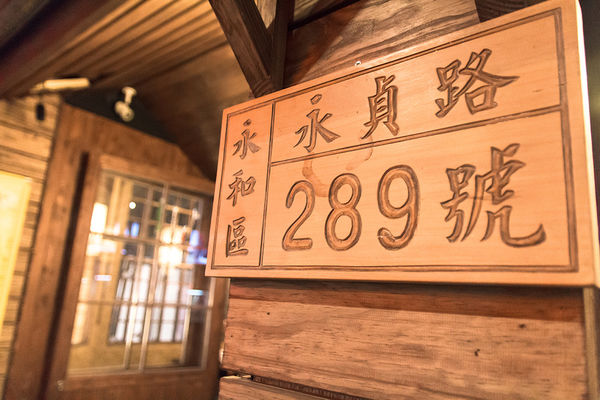 永和區
永貞路
289號